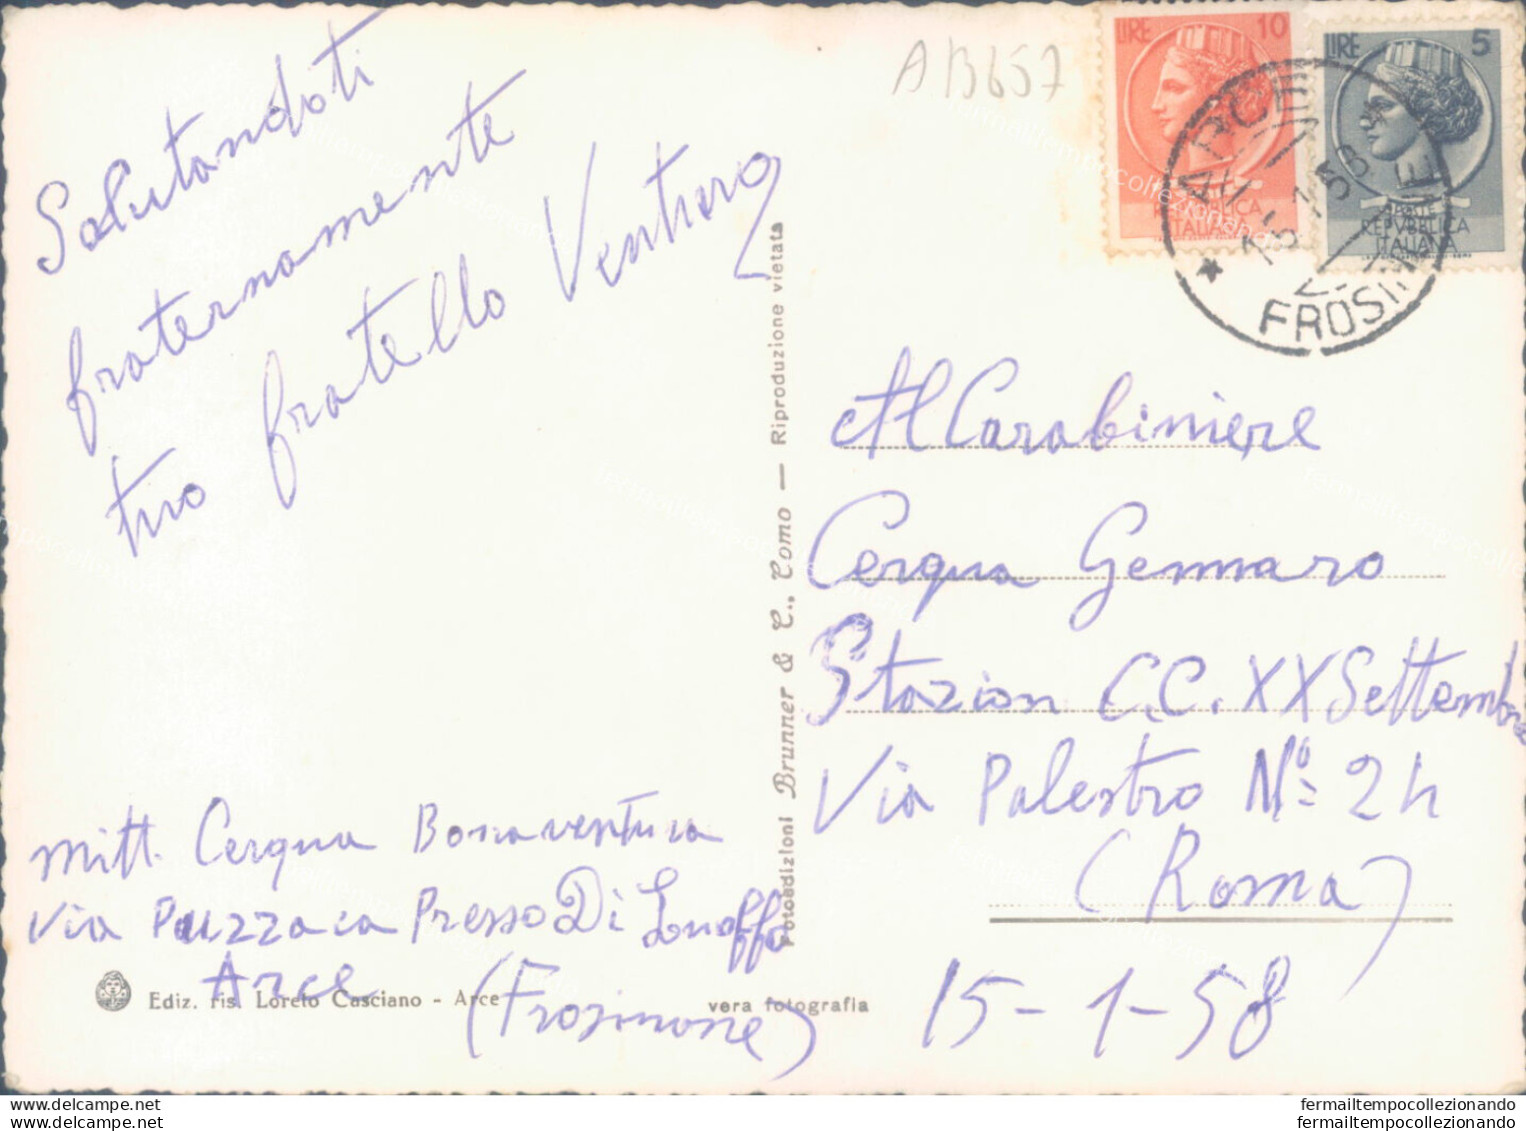 Salutandoti
fraternamente
tuo fratello
Mitt. Cerqua Bonaventura
Via Presso Di
Arce
(Frosinone)
Ediz. ris. Loreto Casciano - Arce
vera fotografia
Fotoedizioni Brunner & C., Como — Riproduzione vietata
AB657
LIRE 10
LIRE 5
REPVBBLICA
ITALIANA
ARCE
15.1.58
FROSINONE
Al Carabiniere
Cerqua Gennaro
Stazion C.C. XX Settembre
Via Palestro Nº 24
(Roma)
15-1-58
fermailtempocollezionando
fermailtempocollezionando
fermailtempocollezionando
fermailtempocollezionando